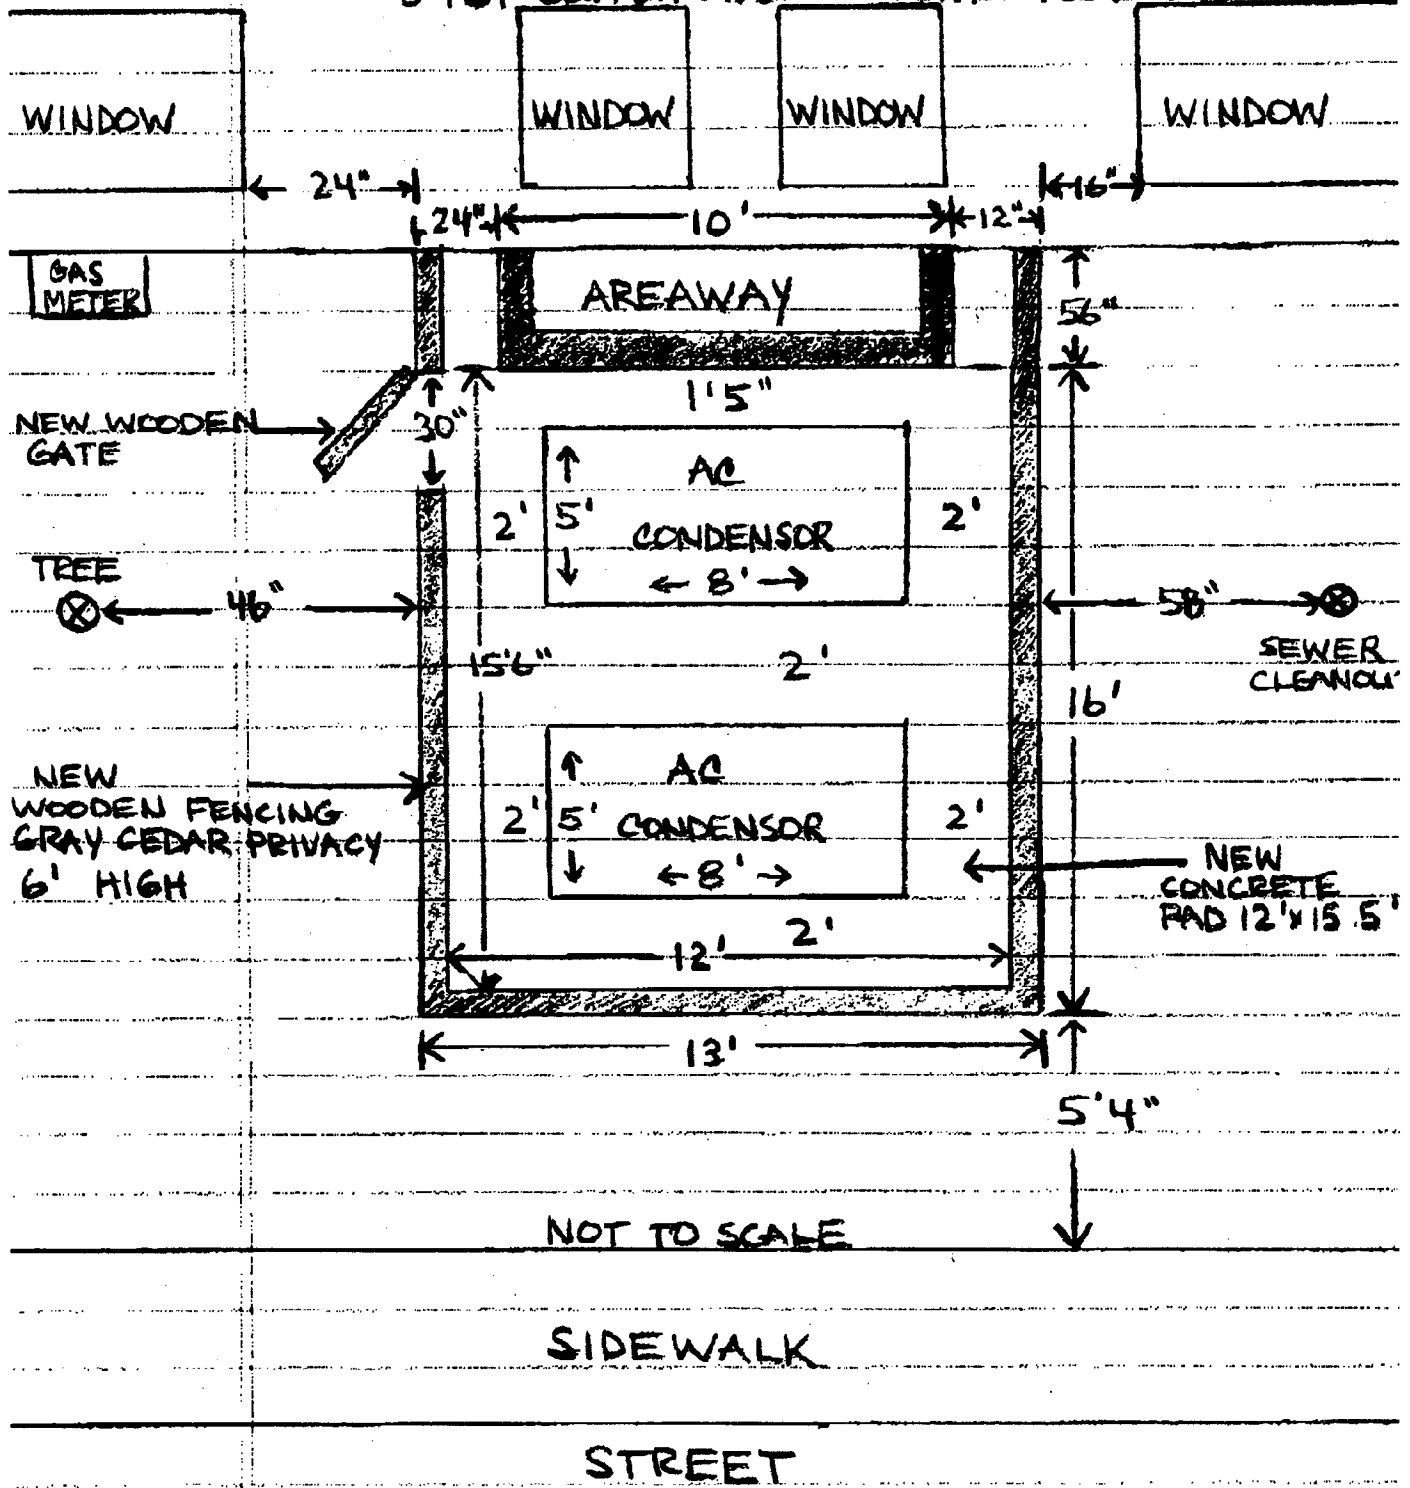 WINDOW
WINDOW
WINDOW
WINDOW
24"
16"
24"
10'
12"
GAS
METER
AREAWAY
56"
1'5"
NEW WOODEN
GATE
30"
AC
5'
2'
2'
CONDENSOR
8'
TREE
46"
58"
15'6"
2'
SEWER
CLEANOU
16'
NEW
WOODEN FENCING
GRAY CEDAR PRIVACY
6' HIGH
AC
2'
5'
CONDENSOR
2'
8'
NEW
CONCRETE
PAD 12'x15.5'
2'
12'
13'
5'4"
NOT TO SCALE
SIDEWALK
STREET